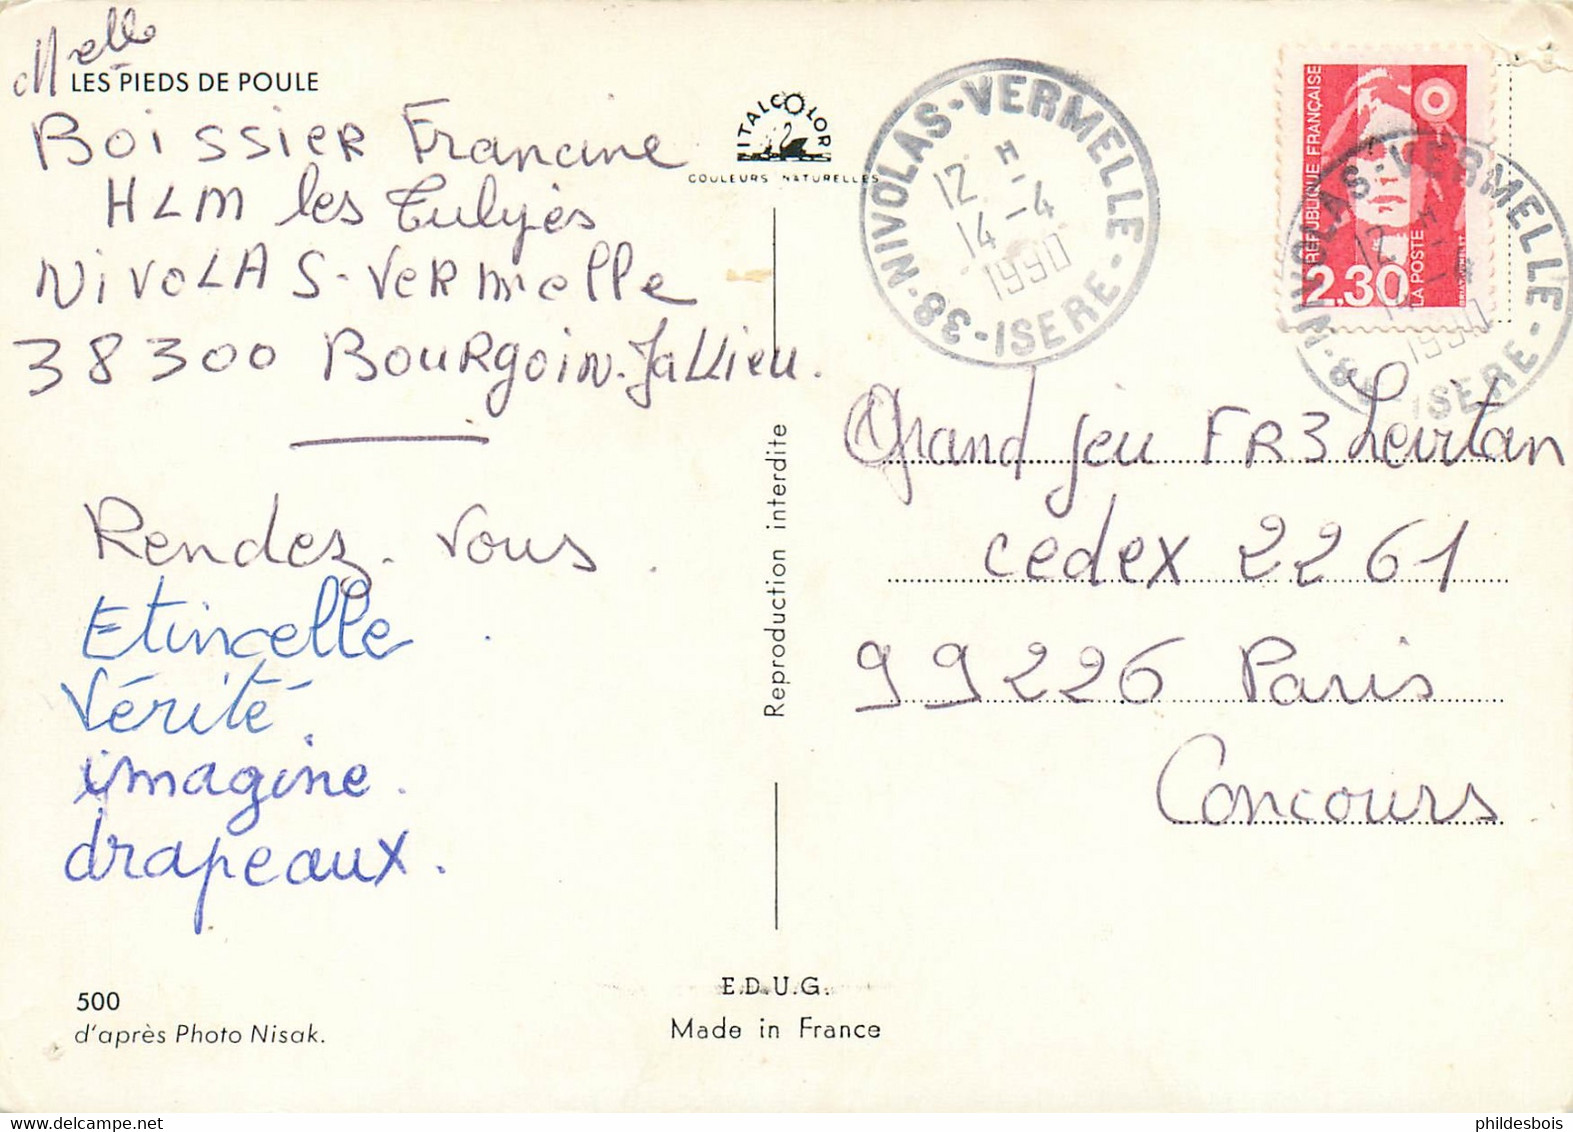 Melle
LES PIEDS DE POULE
BOISSIER Francine
HLM les Tulipes
NIVOLAS-VERmelle
38300 BOURGOIN-JaLLieu.
Rendez-vous.
Etincelle.
Vérité.
imagine.
drapeaux.
500
d'après Photo Nisak.
ITALCOLOR
COULEURS NATURELLES
Reproduction interdite
E.D.U.G.
Made in France
NIVOLAS-VERMELLE
12 H
14-4
1990
38-ISERE
RÉPUBLIQUE FRANÇAISE
2,30
LA POSTE
NIVOLAS-VERMELLE
12 H
1990
38-ISERE
Grand jeu FR3 Levitan
cedex 2261
99226 Paris
Concours
phildesbois